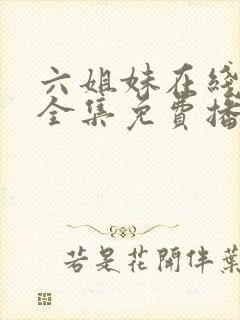 六姐妹在綫
全集免費播
若是花開伴葉